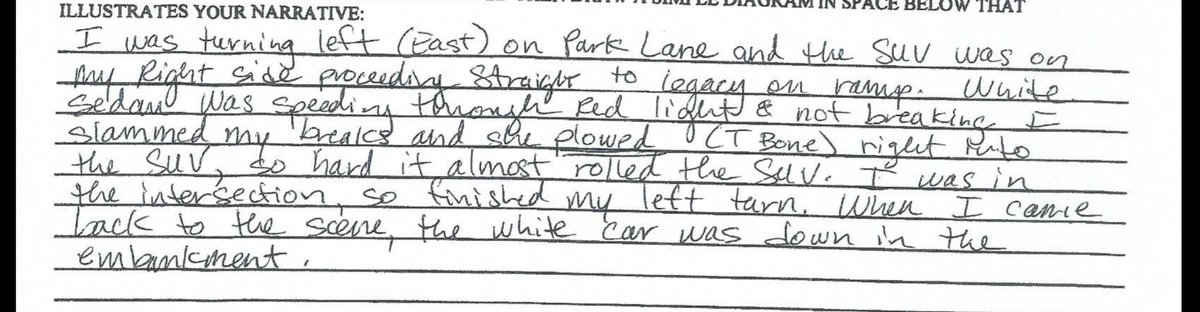 THEN DRAW A SIMPLE DIAGRAM IN SPACE BELOW THAT
ILLUSTRATES YOUR NARRATIVE:
I was turning left (East) on Park Lane and the SUV was on
my Right side proceeding Straight to legacy on ramp. White
Sedan Was Speeding through Red light & not breaking I
slammed my breaks and she plowed (T Bone) right into
the SUV, so hard it almost rolled the SUV. I was in
the intersection, so finished my left turn. When I came
back to the scene, the white car was down in the
embankment.